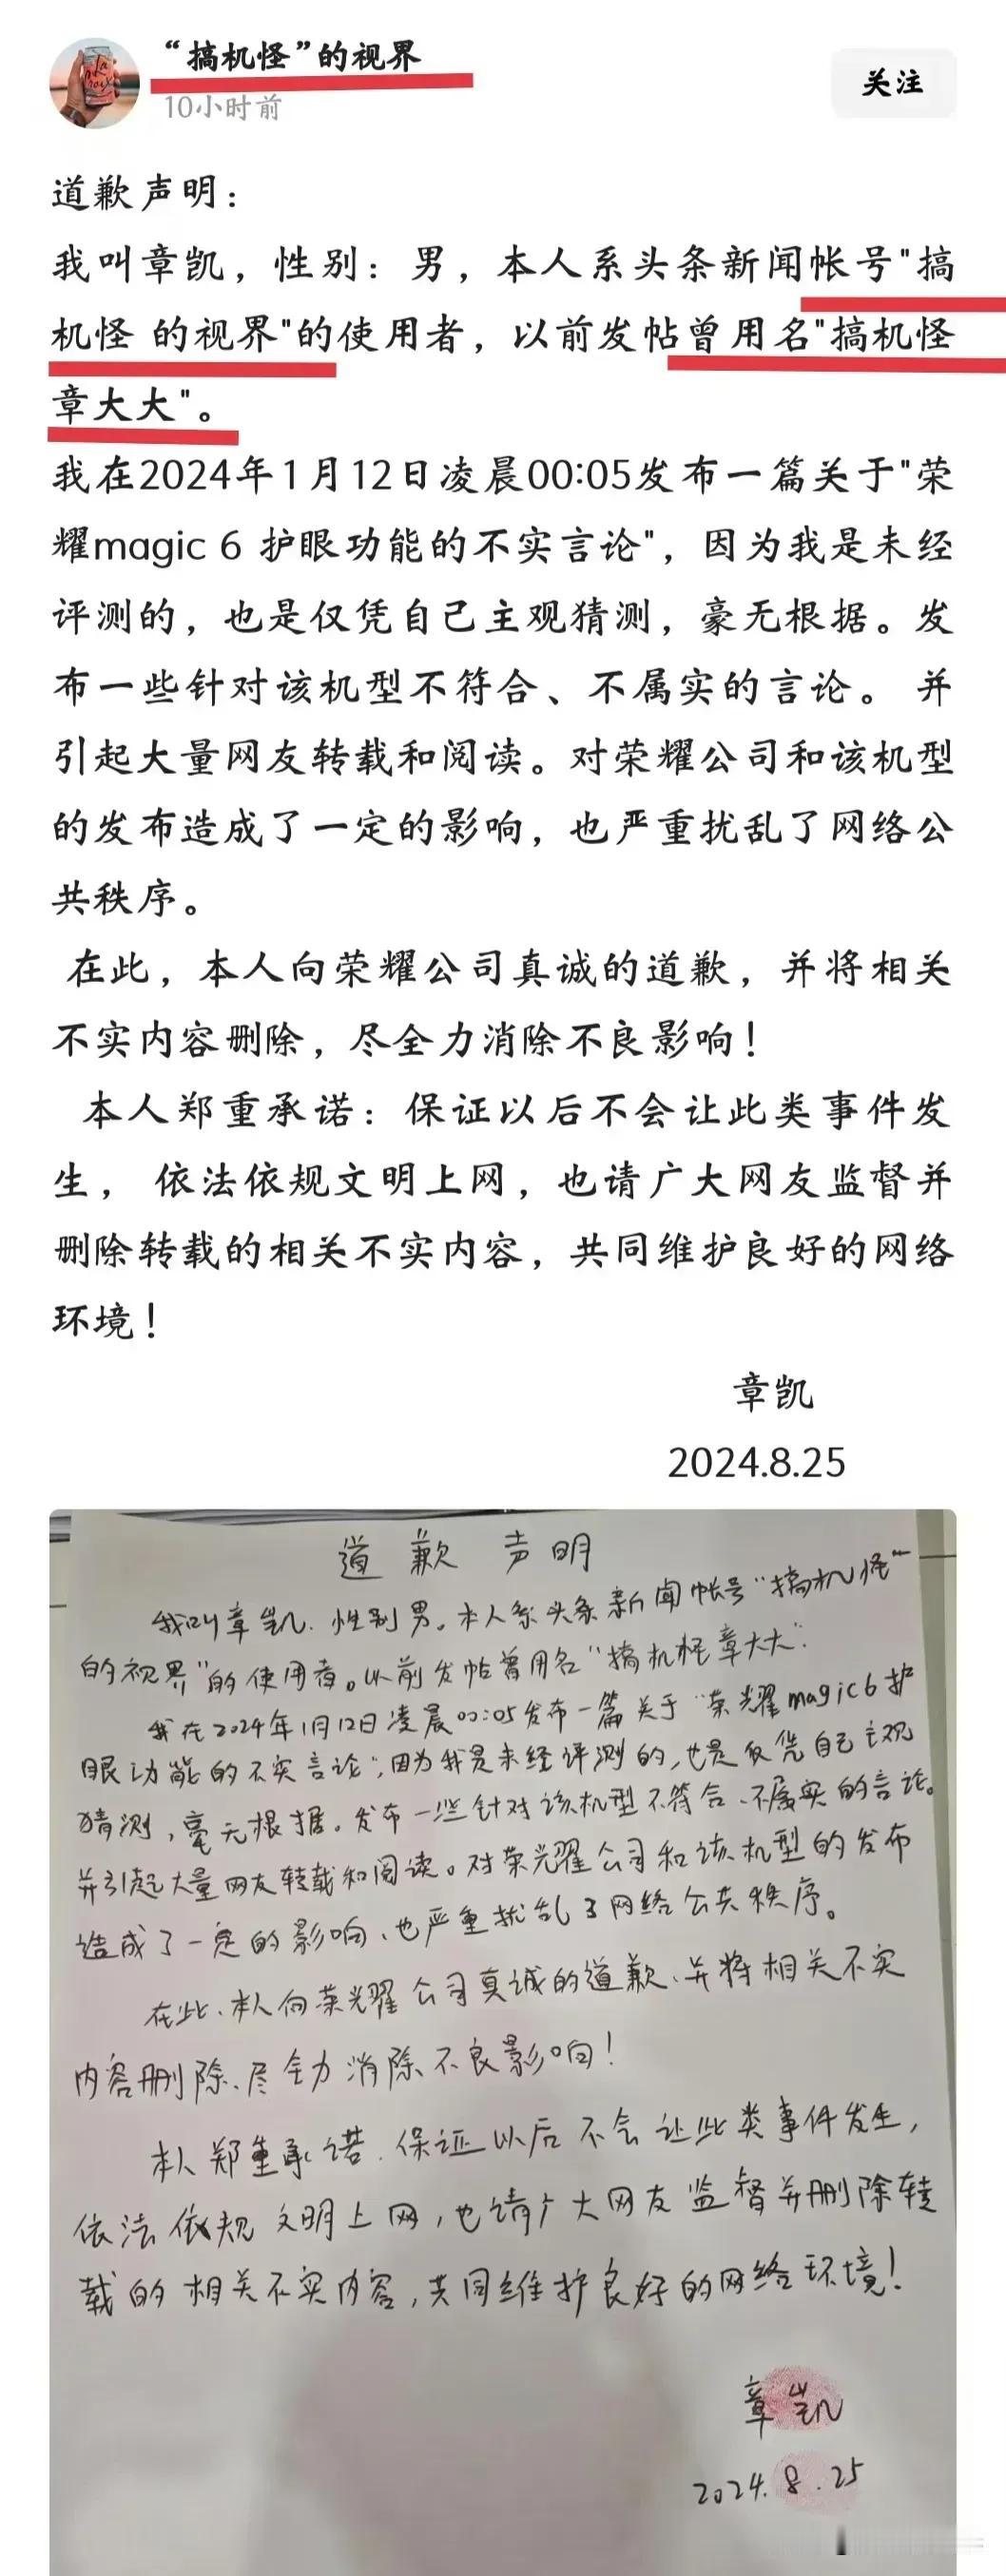 “搞机怪”的视界
10小时前
关注
道歉声明：
我叫章凯，性别：男，本人系头条新闻帐号"搞
机怪 的视界"的使用者，以前发帖曾用名"搞机怪
章大大"。
我在2024年1月12日凌晨00:05发布一篇关于"荣
耀magic 6 护眼功能的不实言论"，因为我是未经
评测的，也是仅凭自己主观猜测，豪无根据。发
布一些针对该机型不符合、不属实的言论。 并
引起大量网友转载和阅读。对荣耀公司和该机型
的发布造成了一定的影响，也严重扰乱了网络公
共秩序。
在此，本人向荣耀公司真诚的道歉，并将相关
不实内容删除，尽全力消除不良影响！
本人郑重承诺：保证以后不会让此类事件发
生， 依法依规文明上网，也请广大网友监督并
删除转载的相关不实内容，共同维护良好的网络
环境！
章凯
2024.8.25
道歉声明
我叫章凯. 性别男。本人系头条新闻帐号“搞机怪”
的视界”的使用者。以前发帖曾用名“搞机怪章大大”.
我在2024年1月12日凌晨00:05发布一篇关于“荣耀magic6护
眼功能的不实言论”,因为我是未经评测的,也是仅凭自己主观
猜测,毫无根据。发布一些针对该机型不符合、不属实的言论。
并引起大量网友转载和阅读。对荣耀公司和该机型的发布
造成了一定的影响、也严重扰乱了网络公共秩序。
在此、本人向荣耀公司真诚的道歉、并将相关不实
内容删除、尽全力消除不良影响!
本人郑重承诺. 保证以后不会让此类事件发生,
依法依规文明上网,也请广大网友监督并删除转
载的相关不实内容,共同维护良好的网络环境!
章凯
2024.8.25